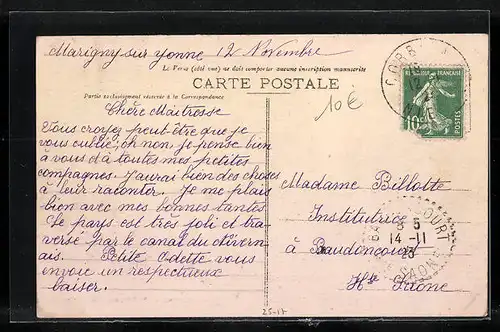 Marigny sur Yonne 12 Novembre
Le Recto (côté vue) ne doit comporter aucune inscription manuscrite
CARTE POSTALE
Partie exclusivement réservée à la Correspondance
10€
Chère Maîtresse
Vous croyez peut-être que je
vous oublie, oh non, je pense bien
à vous d'à toutes mes petites
compagnes. J'aurai bien des choses
à leur raconter. Je me plais
bien avec mes bonnes tantes.
Le pays est très joli et tra-
versé par le canal du Nivern-
ais. Petite Odette vous
envoie un respectueux
baiser.
CORB
12
REPUBLIQUE FRANÇAISE
10c
POSTES
Madame Billotte
Institutrice
à Baudoncourt
Hte Saône
COURT
8 5
14 - 11
23
SAONE
25-17